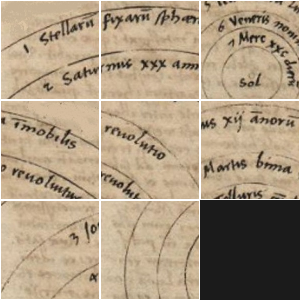 1 Stellarū fixarū sphær
2 Saturnus xxx ann
5
6 Veneris nonim
7 Merc xxc dieru
Sol
immobilis
o reuoluitur
reuolutio
reuolut
us xij annorū
Martis bima
Telluris
3 Jo
4